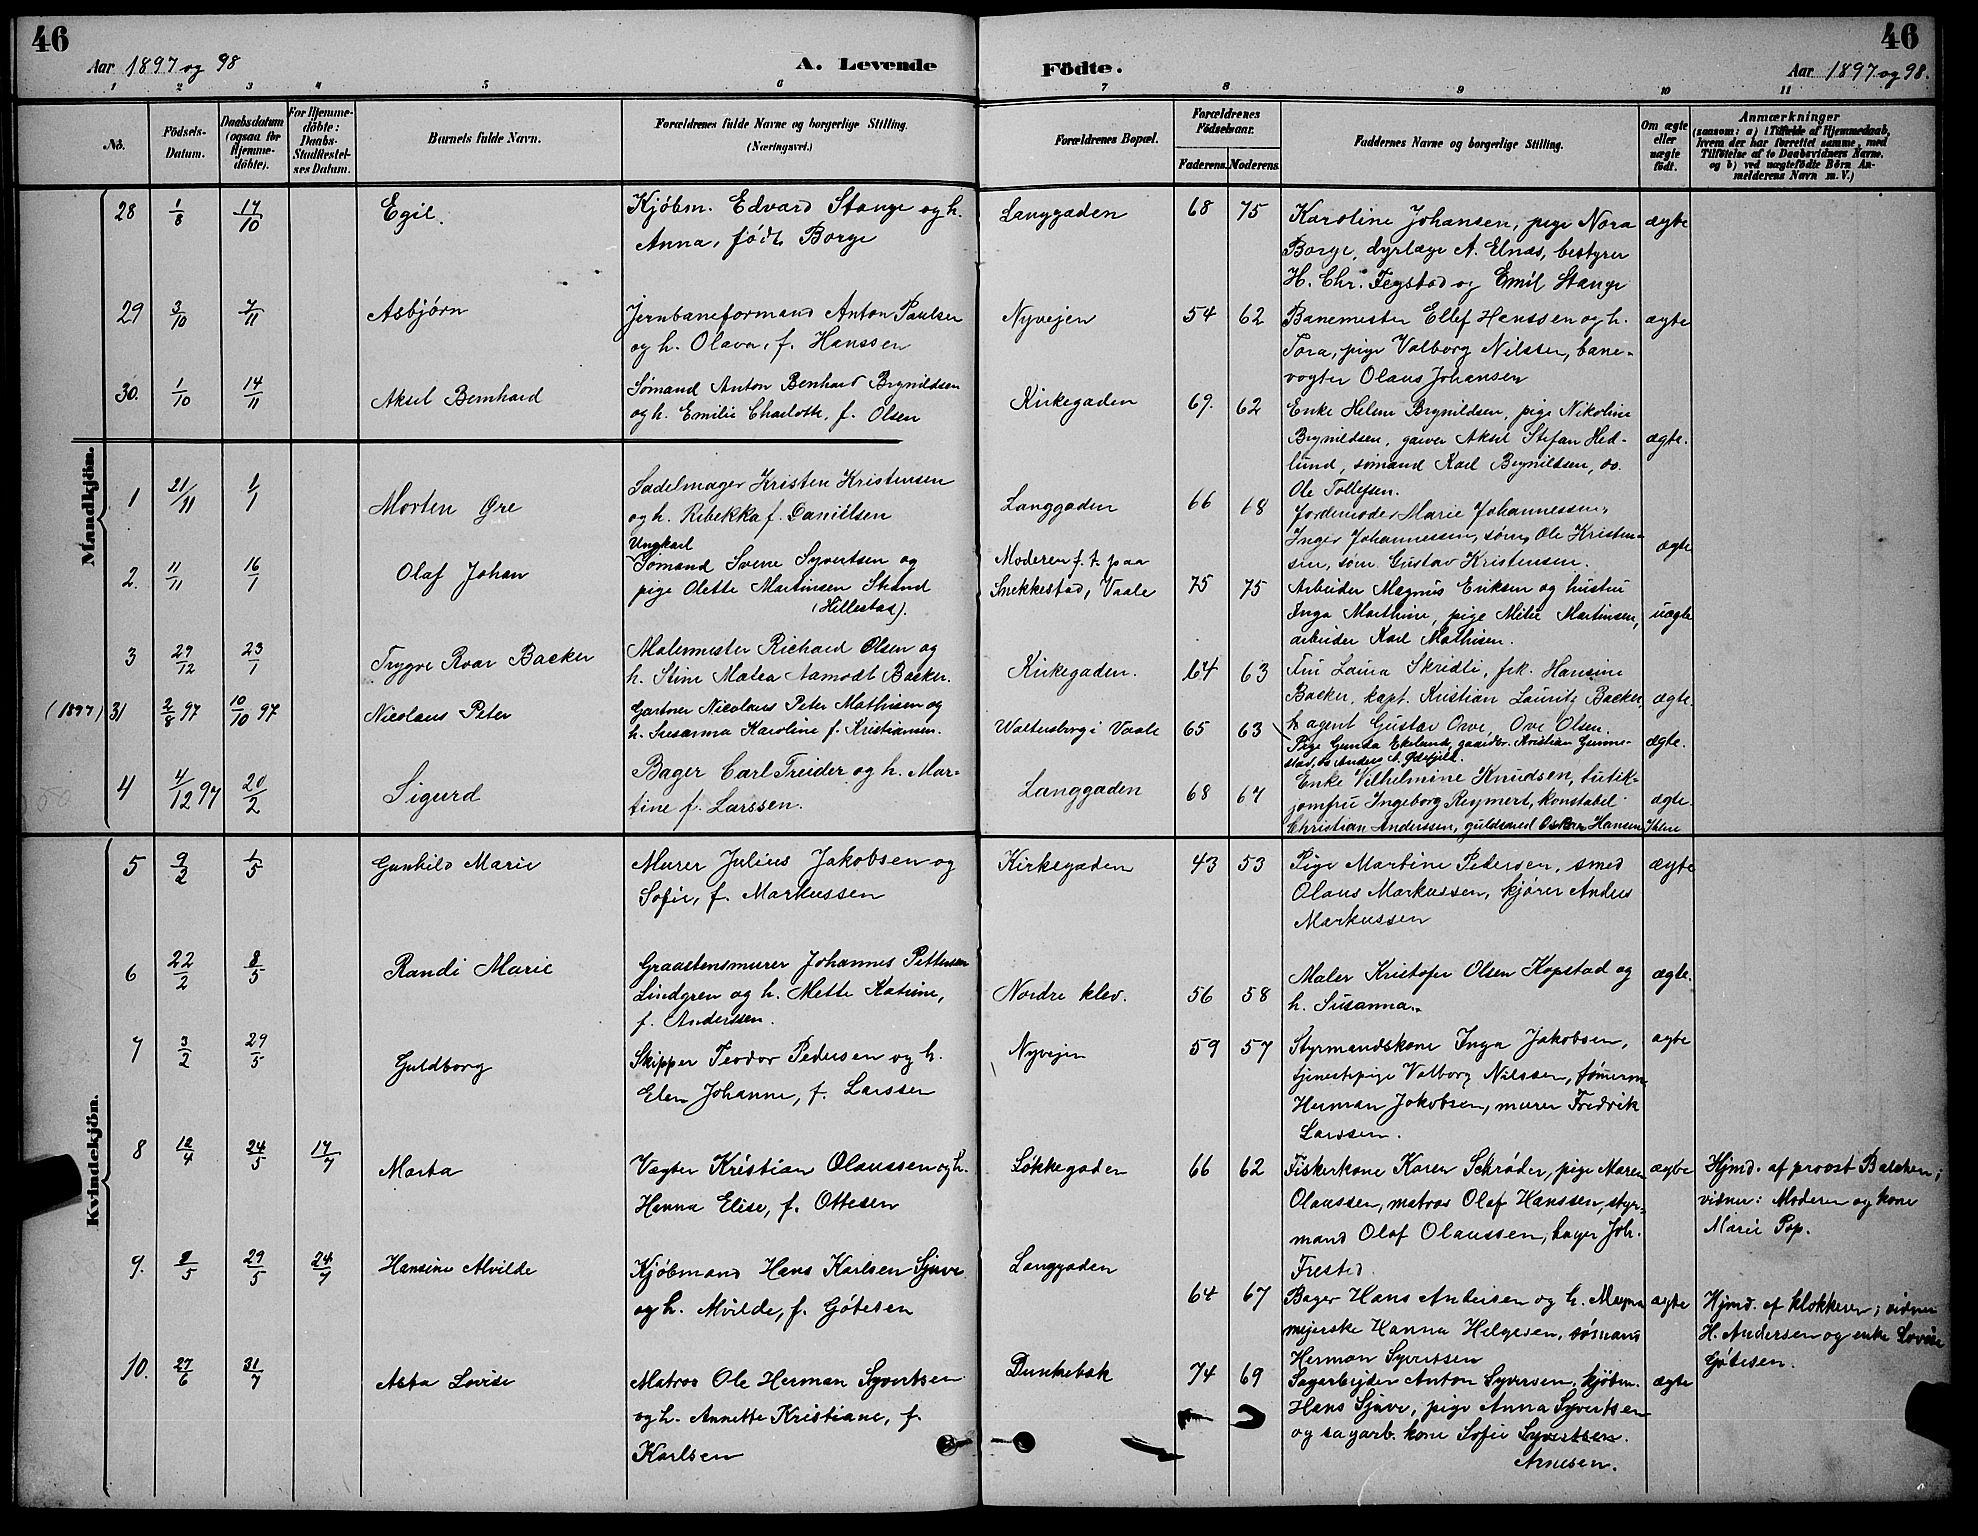 46
46
Aar 1897 og 98
A. Levende
Födte.
Aar 1897 og 98.
1 2 3 4 5 6 7 8 9 10 11
No.
Födsels-
Datum.
Daabsdatum
(ogsaa for
Hjemme-
döbte).
For Hjemme-
döbte:
Daabs-
Stadfestel-
ses Datum.
Barnets fulde Navn.
Forældrenes fulde Navne og borgerlige Stilling.
(Næringsvei.)
Forældrenes Bopæl.
Forældrenes
Födselsaar.
Faderens.
Moderens.
Faddernes Navne og borgerlige Stilling.
Om ægte
eller
uægte
födt.
Anmærkninger
(saasom: a) i Tilfælde af Hjemmedaab,
hvem der har forrettet samme, med
Tilföielse af to Daabsvidners Navne,
og b) ved uægtefödte Börn An-
melderens Navn m. V.)
Mandkjön.
28 1/8 17/10 Egil.
Kjöbm. Edvard Stange og h.
Anna, födt Borge
Langgaden 68 75
Karoline Johansen, pige Nora
Borge, dyrlæge A. Elnæs, bestyrer
H. Chr. Fegstad og Emil Stange
ægte
29 3/10 7/11 Asbjørn
Jernbaneformand Anton Paulsen
og h. Olava, f. Hanssen
Nyvejen 54 62
Banemester Ellef Hanssen og h.
Tora, pige Valborg Nilssen, bane-
vogter Olaus Johansen
ægte
30. 1/10 14/11 Aksel Bernhard
Sømand Anton Benhard Brynildsen
og h. Emilie Charloth, f. Olsen
Kirkegaden 69. 62
Enke Helene Brynildsen, pige Nikoline
Brynildsen, garver Aksel Stefan Hed-
lund, sømand Karl Brynildsen, do.
Ole Tollefsen.
ægte.
1 21/11 1/1 Morten Øre
Sadelmager Kristen Kristensen
og h. Ribekka f. Danielsen
Langgaden 66 68
Jordemoder Marie Johannessen,
Inger Johannessen, søm. Ole Kristen-
sen, søm. Gustav Kristensen.
ægte
2. 11/11 16/1 Olaf Johan
Ungkarl
Sømand Svene Syvertsen og
pige Olette Martinsen Strand
(Hillestad).
Moderen f. t. paa
Snekkestad, Vaale 75 75
Arbeider Magnus Eriksen og hustru
Inga Marthine, pige Milie Martinsen,
arbeider Karl Mathisen.
uægte
3 29/12 23/1 Trygve Roar Backer
Malermester Richard Olsen og
h. Stine Matea Aamodt Backer.
Kirkegaden. 64 63
Fru Laura Skridti, frk. Hansine
Backer, kapt. Kristian Lauritz Backer,
h agent Gustav Orve, Ove Olsen.
ægte.
(1897) 31 2/8 97 10/10 97 Nicolaus Peter
Gartner Nicolaus Peter Mathisen og
h. Susanna Karoline f. Kristiansen.
Waltersborg i Vaale 65 63
Pige Gunda Ekelund, gaardbr. Kristian Gunne-
stad, do Anders A.
ægte.
4 4/12 97 20/2 Sigurd
Bager Carl Treider og h. Mar-
tine f. Larssen.
Langgaden 68 67
Enke Vilhelmine Knudsen, butik-
jomfru Ingeborg Reymert, konstabel
Christian Anderssen, guldsmed Oskar Hansen Ihlen
ægte.
Kvindekjön.
5 9/2 1/5 Gunhild Marie
Murer Julius Jakobsen og
Sofie, f. Markussen
Kirkegaden 43 53
Pige Martine Pedersen, smed
Olaus Markussen, kjører Anders
Markussen
ægte
6 22/2 8/5 Randi Marie
Graastensmurer Johannes Pettersen
Lindgren og h. Mette Katrine,
f. Anderssen.
Nordre klev. 56 58
Maler Kristofer Olsen Kopstad og
h. Susanna.
ægte.
7 3/2 29/5 Guldborg
Skipper Teodor Pedersen og h.
Elen Johanne, f. Larssen
Nyvejen 59 57
Styrmandskone Inga Jakobsen,
tjenestepige Valborg Nilssen, tømerm.
Herman Jakobsen, murer Fredrik
Larssen.
ægte
8 12/4 24/5 17/7 Marta
Vægter Kristian Olaussen og h.
Hanna Elise, f. Ottesen
Løkkegaden 66 62
Fiskerkone Karen Schrøder, pige Maren
Olaussen, matros Olaf Hanssen, styr-
mand Olaf Olaussen, bager Joh.
Frested.
ægte
Hjmd. af provst Balchen;
vidner: Moderen og kone
Marie Pop.
9. 8/5 29/5 24/7 Hansine Alvilde
Kjøbmand Hans Karlsen Sjuve
og h. Alvilde, f. Gøtesen
Langgaden 64 67
Bager Hans Andersen og h. Magna
mejerske Hanna Helgesen, sømand
Herman Syvertsen
ægte
Hjmd. af klokkeren; vidner
H. Andersen og enke Lovise
Gøtesen.
10. 27/6 31/7 Asta Lovise
Matros Ole Herman Syvertsen
og h. Annette Kristiane, f.
Karlsen
Dunkebak 74 69
Sagarbejder Anton Syversen, kjøbm.
Hans Sjuve, pige Anna Syvertsen
og sagarb. kone Sofie Syvertsen.
Arnesen.
ægte